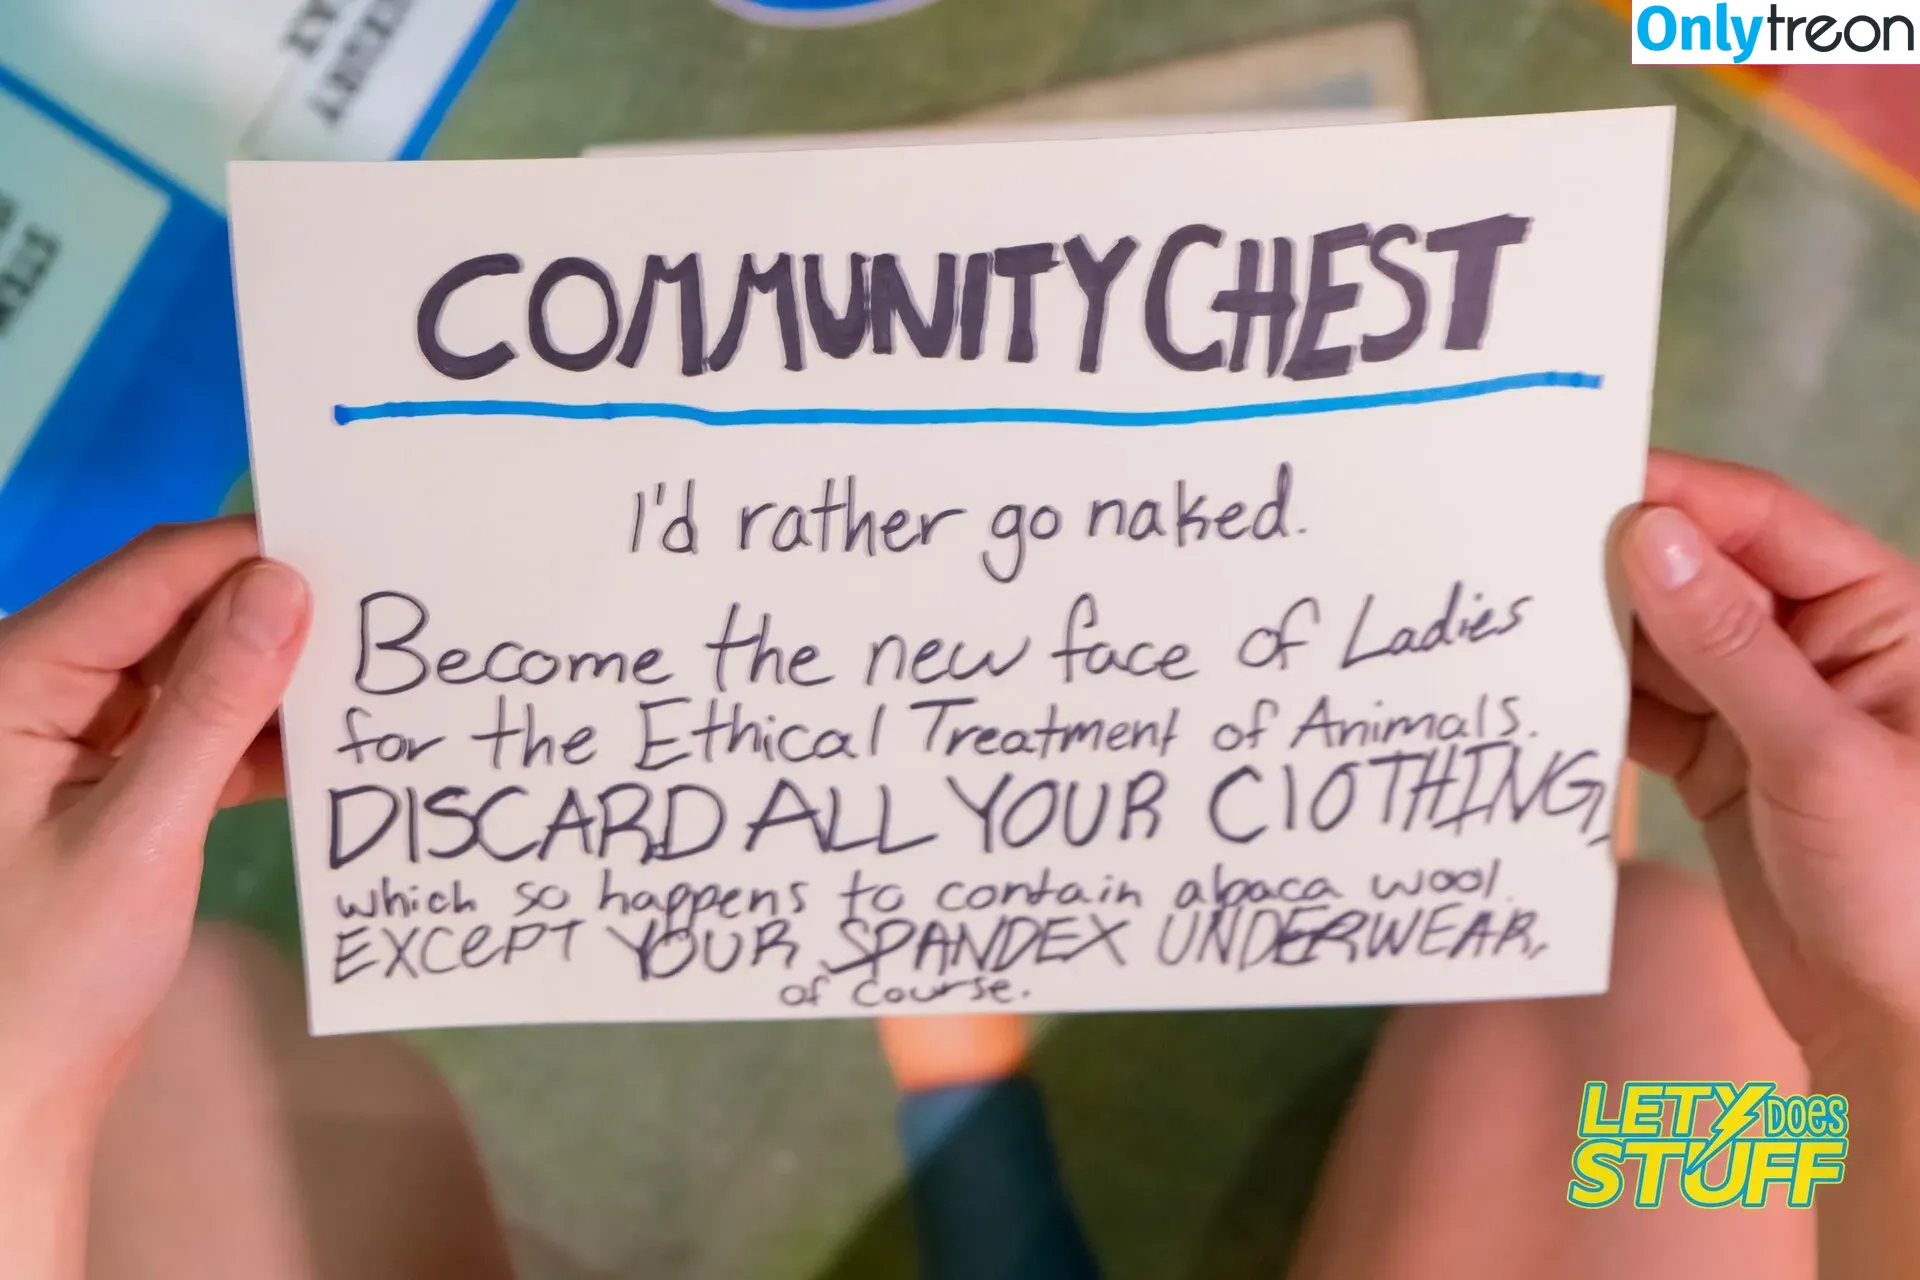 Onlytreon
COMMUNITY CHEST
I'd rather go naked.
Become the new face of Ladies
for the Ethical Treatment of Animals.
DISCARD ALL YOUR ClOTHING,
which so happens to contain alpaca wool.
EXCePT YOUR SPANDEX UNDERWEAR,
of course.
LETY DOES
STUFF